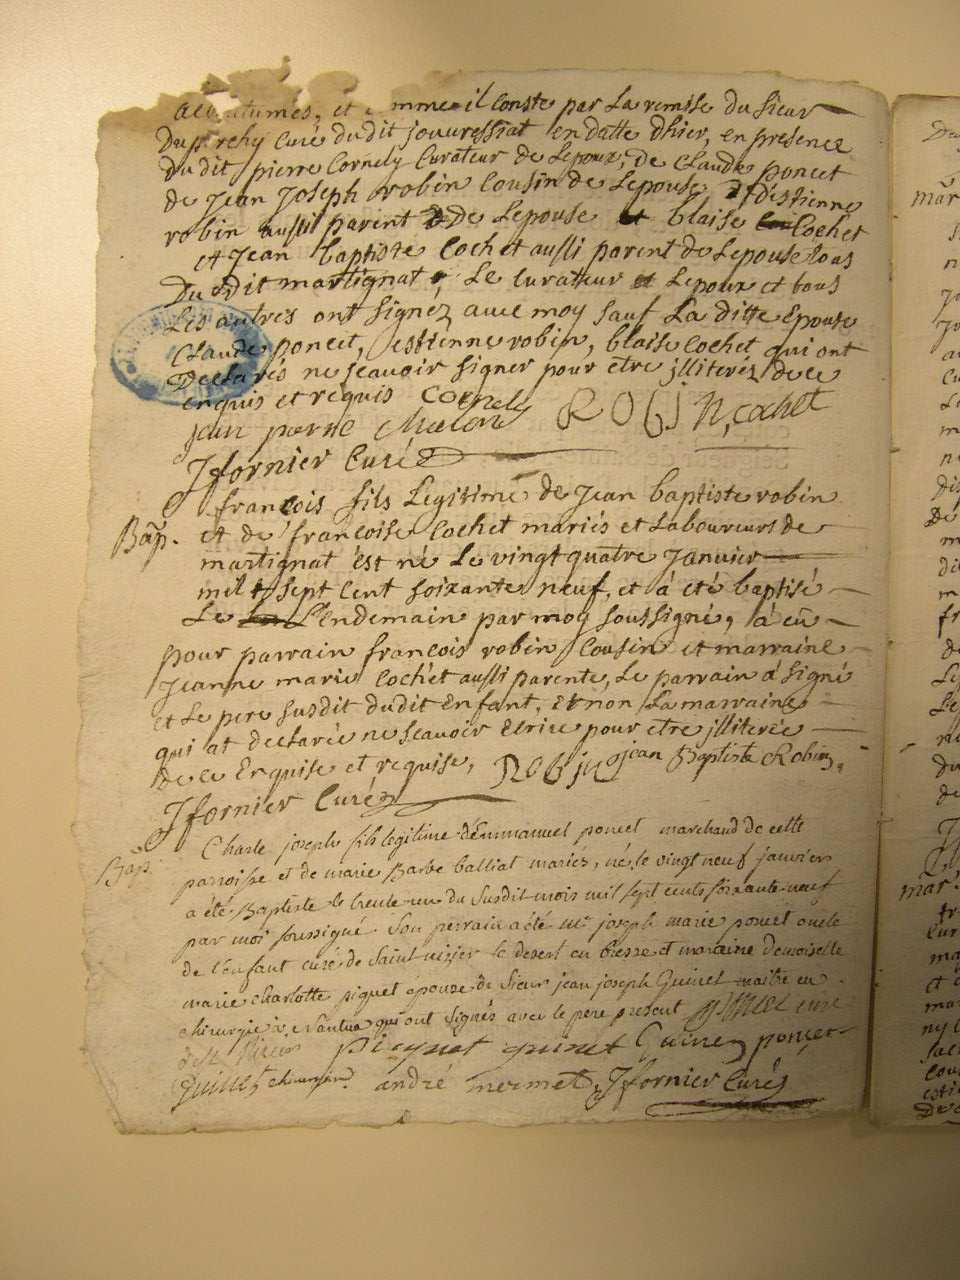 accoutumés, et comme il conste par La remise du sieur
curé dudit jouvressiat en datte dhier, en presence
du dit pierre Cornely Curateur de Lepoux, de Claude poncet
de Jean Joseph robin Cousin de Lepouse, d'estienne
robin aussi parent de Lepouse et blaise Cochet
et Jean baptiste Cochet aussi parent de Lepouse tous
Du dit martignat, Le Curateur et Lepoux et tous
Les autres ont signéz avec moy sauf La ditte Epouse
Claude poncet, estienne robin, blaise Cochet qui ont
Declarés ne scauoir signer pour etre jlliterés de ce
enquis et requis Cornely ROBIN, cochet
jean pierre
J fornier Curé
françois fils Legitime de Jean baptiste robin
Bap. et de françoise Cochet mariés et Laboureurs de
martignat ést né Le vingt quatre Janvier
mil sept cent soixante neuf, et á eté baptisé
Le L'endemain par moy soussigné, á eû
pour parrain françois robin Cousin et marraine
Jeanne marie Cochet aussi parente, Le parrain á signé
et Le pere susdit dudit enfant, et non La marraine
qui at declarée ne scauoir Ecrire pour etre jlliterée
de ce Enquise et requise, Robin jean Baptiste Robin
J fornier Curé
Bap. Charle joseph fils legitime d'Emmanuel poncet marchand de cette
parroisse et de marie Barbe balliat mariés, né le vingt neuf janvier
a été Baptisé le trente un du susdit mois mil sept cents soixante neuf
par moi soussigné. Son parrain a été mr joseph marie poncet oncle
de l'enfant curé de Saint nizier le desert en bresse et maraine demoiselle
marie charlotte piquet epouse de Sieur jean joseph Guinet maitre en
chirurgie a nantua qui ont signés avec le père present poncet curé
de st nizier piquet guinet Guinet ponçet
guinet chirurgien andré mermet J fornier Curé